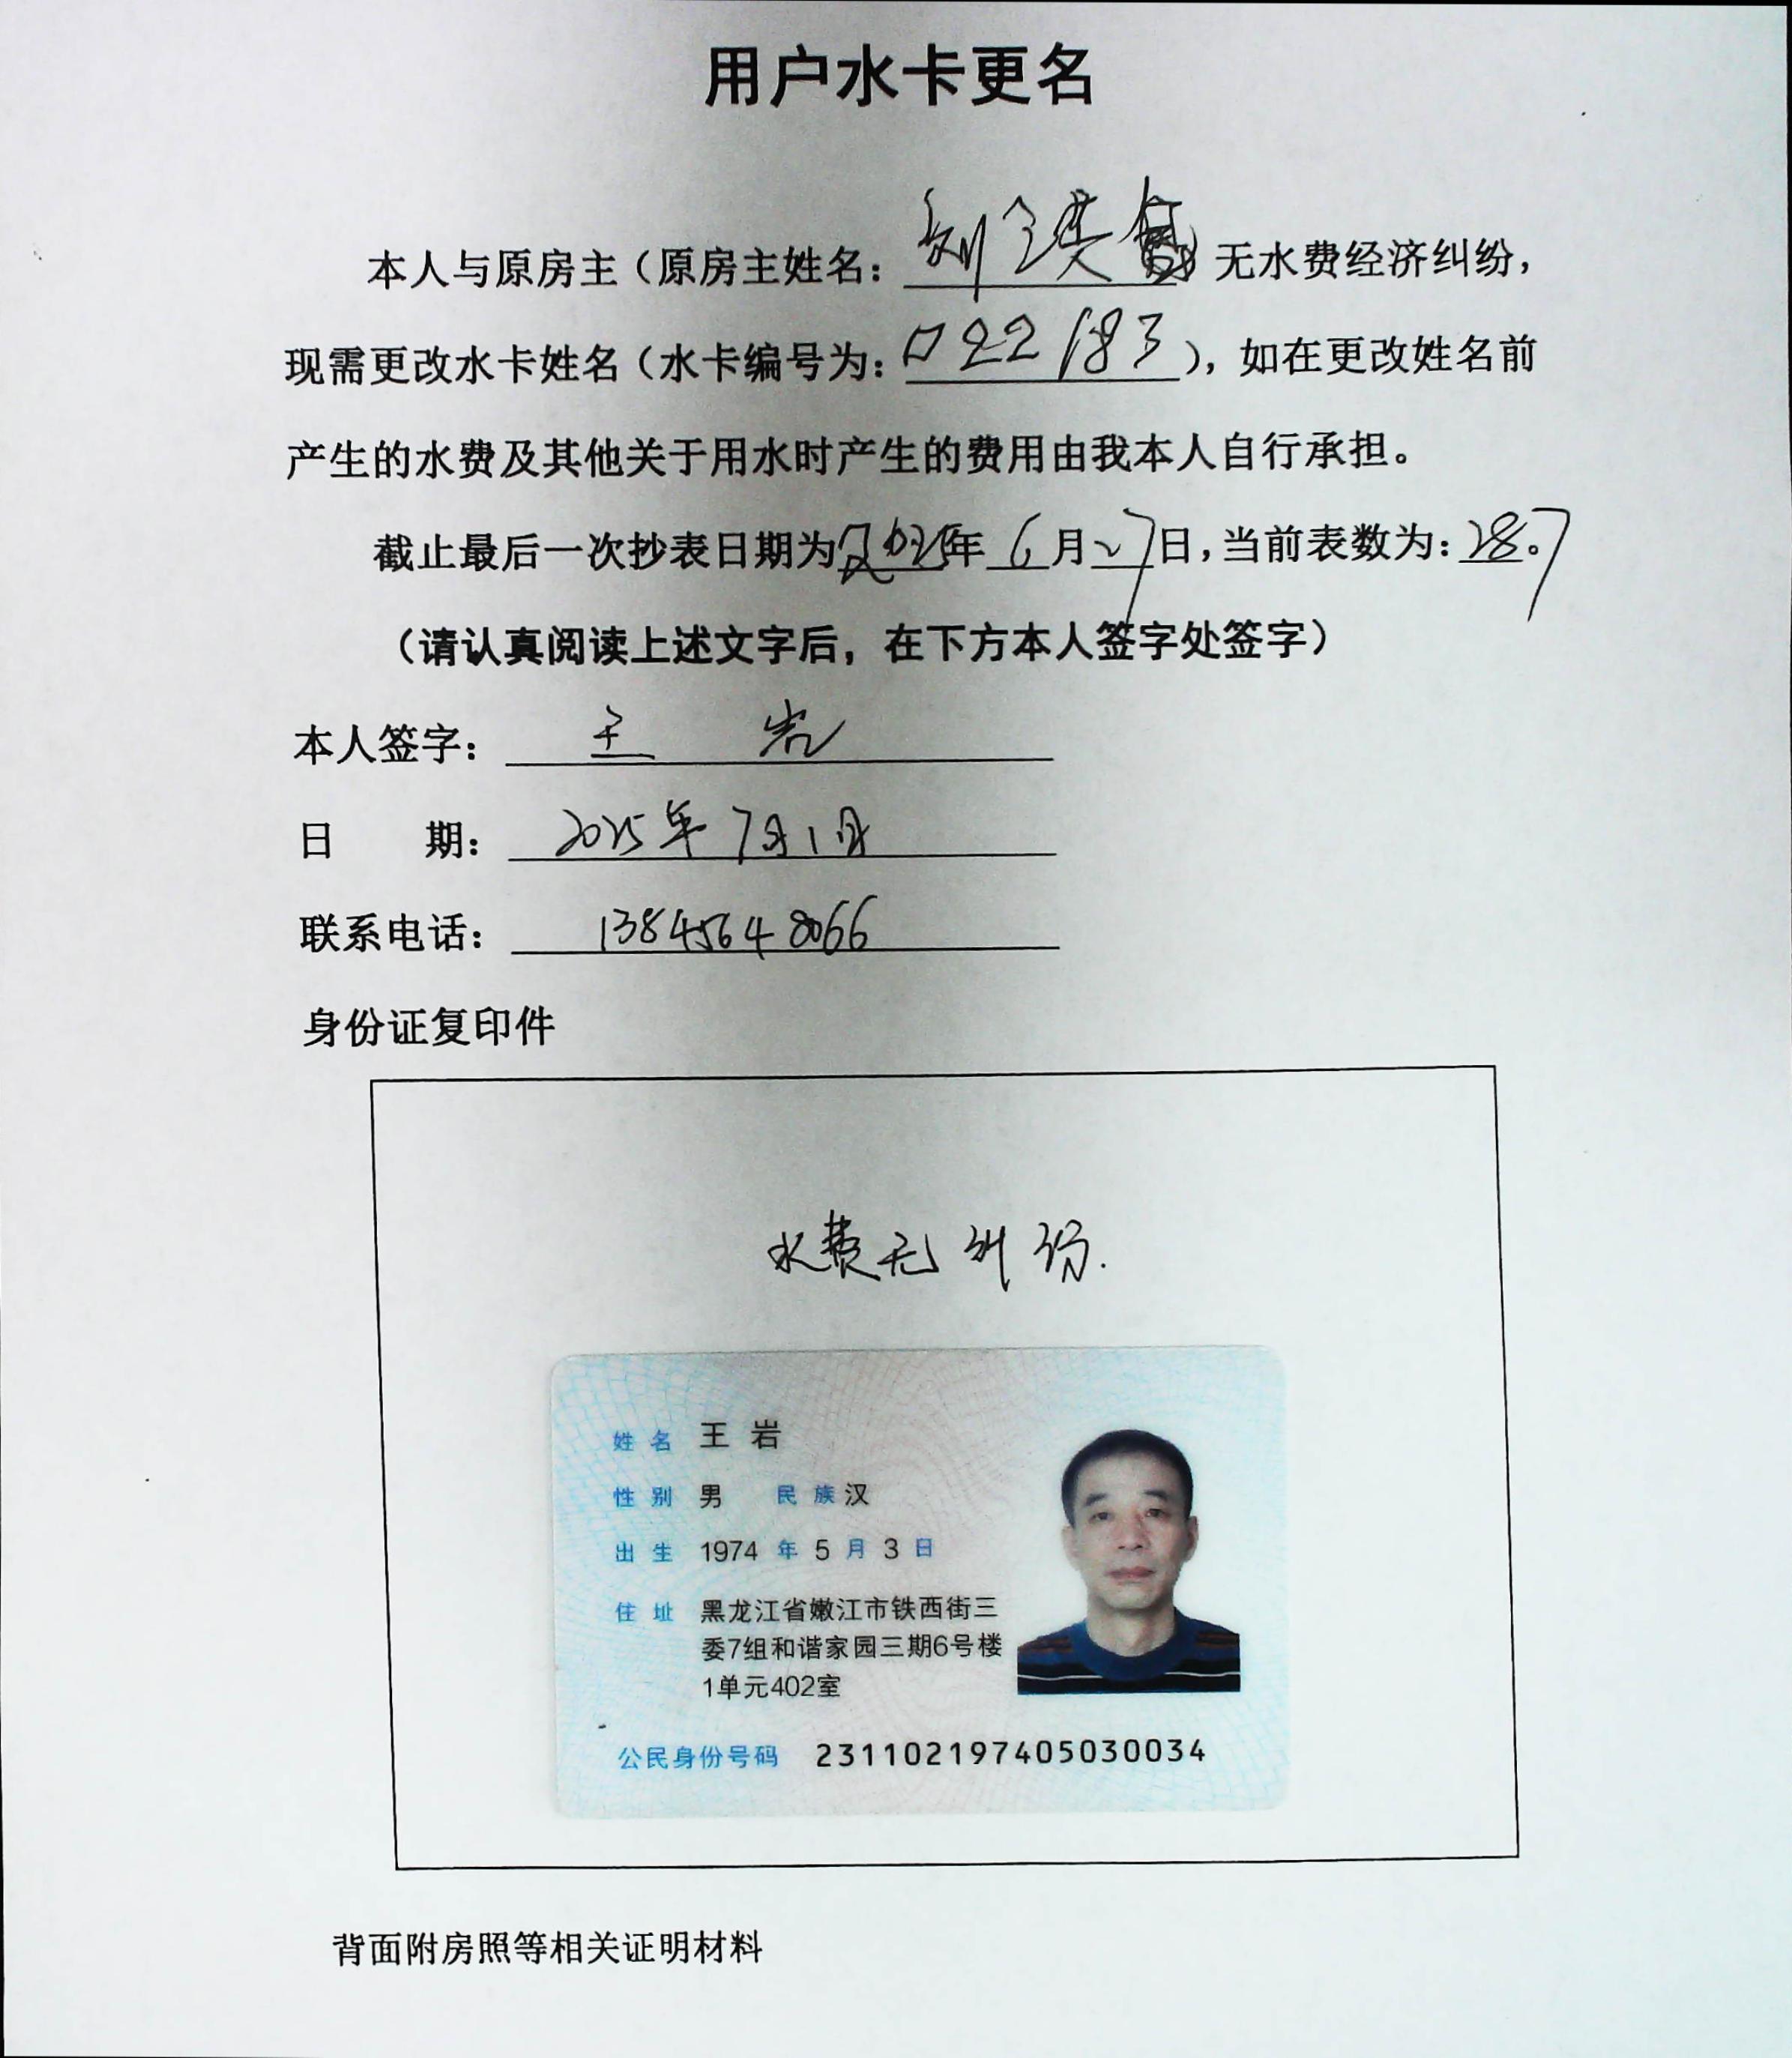 用户水卡更名
本人与原房主（原房主姓名：刘 无水费经济纠纷，
现需更改水卡姓名（水卡编号为：022183），如在更改姓名前
产生的水费及其他关于用水时产生的费用由我本人自行承担。
截止最后一次抄表日期为2025年6月27日，当前表数为：287。
（请认真阅读上述文字后，在下方本人签字处签字）
本人签字：王 岩
日 期：2025年7月1日
联系电话：13845648066
身份证复印件
水费无纠纷.
姓名 王岩
性别 男 民族 汉
出生 1974年5月3日
住址 黑龙江省嫩江市铁西街三
委7组和谐家园三期6号楼
1单元402室
公民身份号码 231102197405030034
背面附房照等相关证明材料